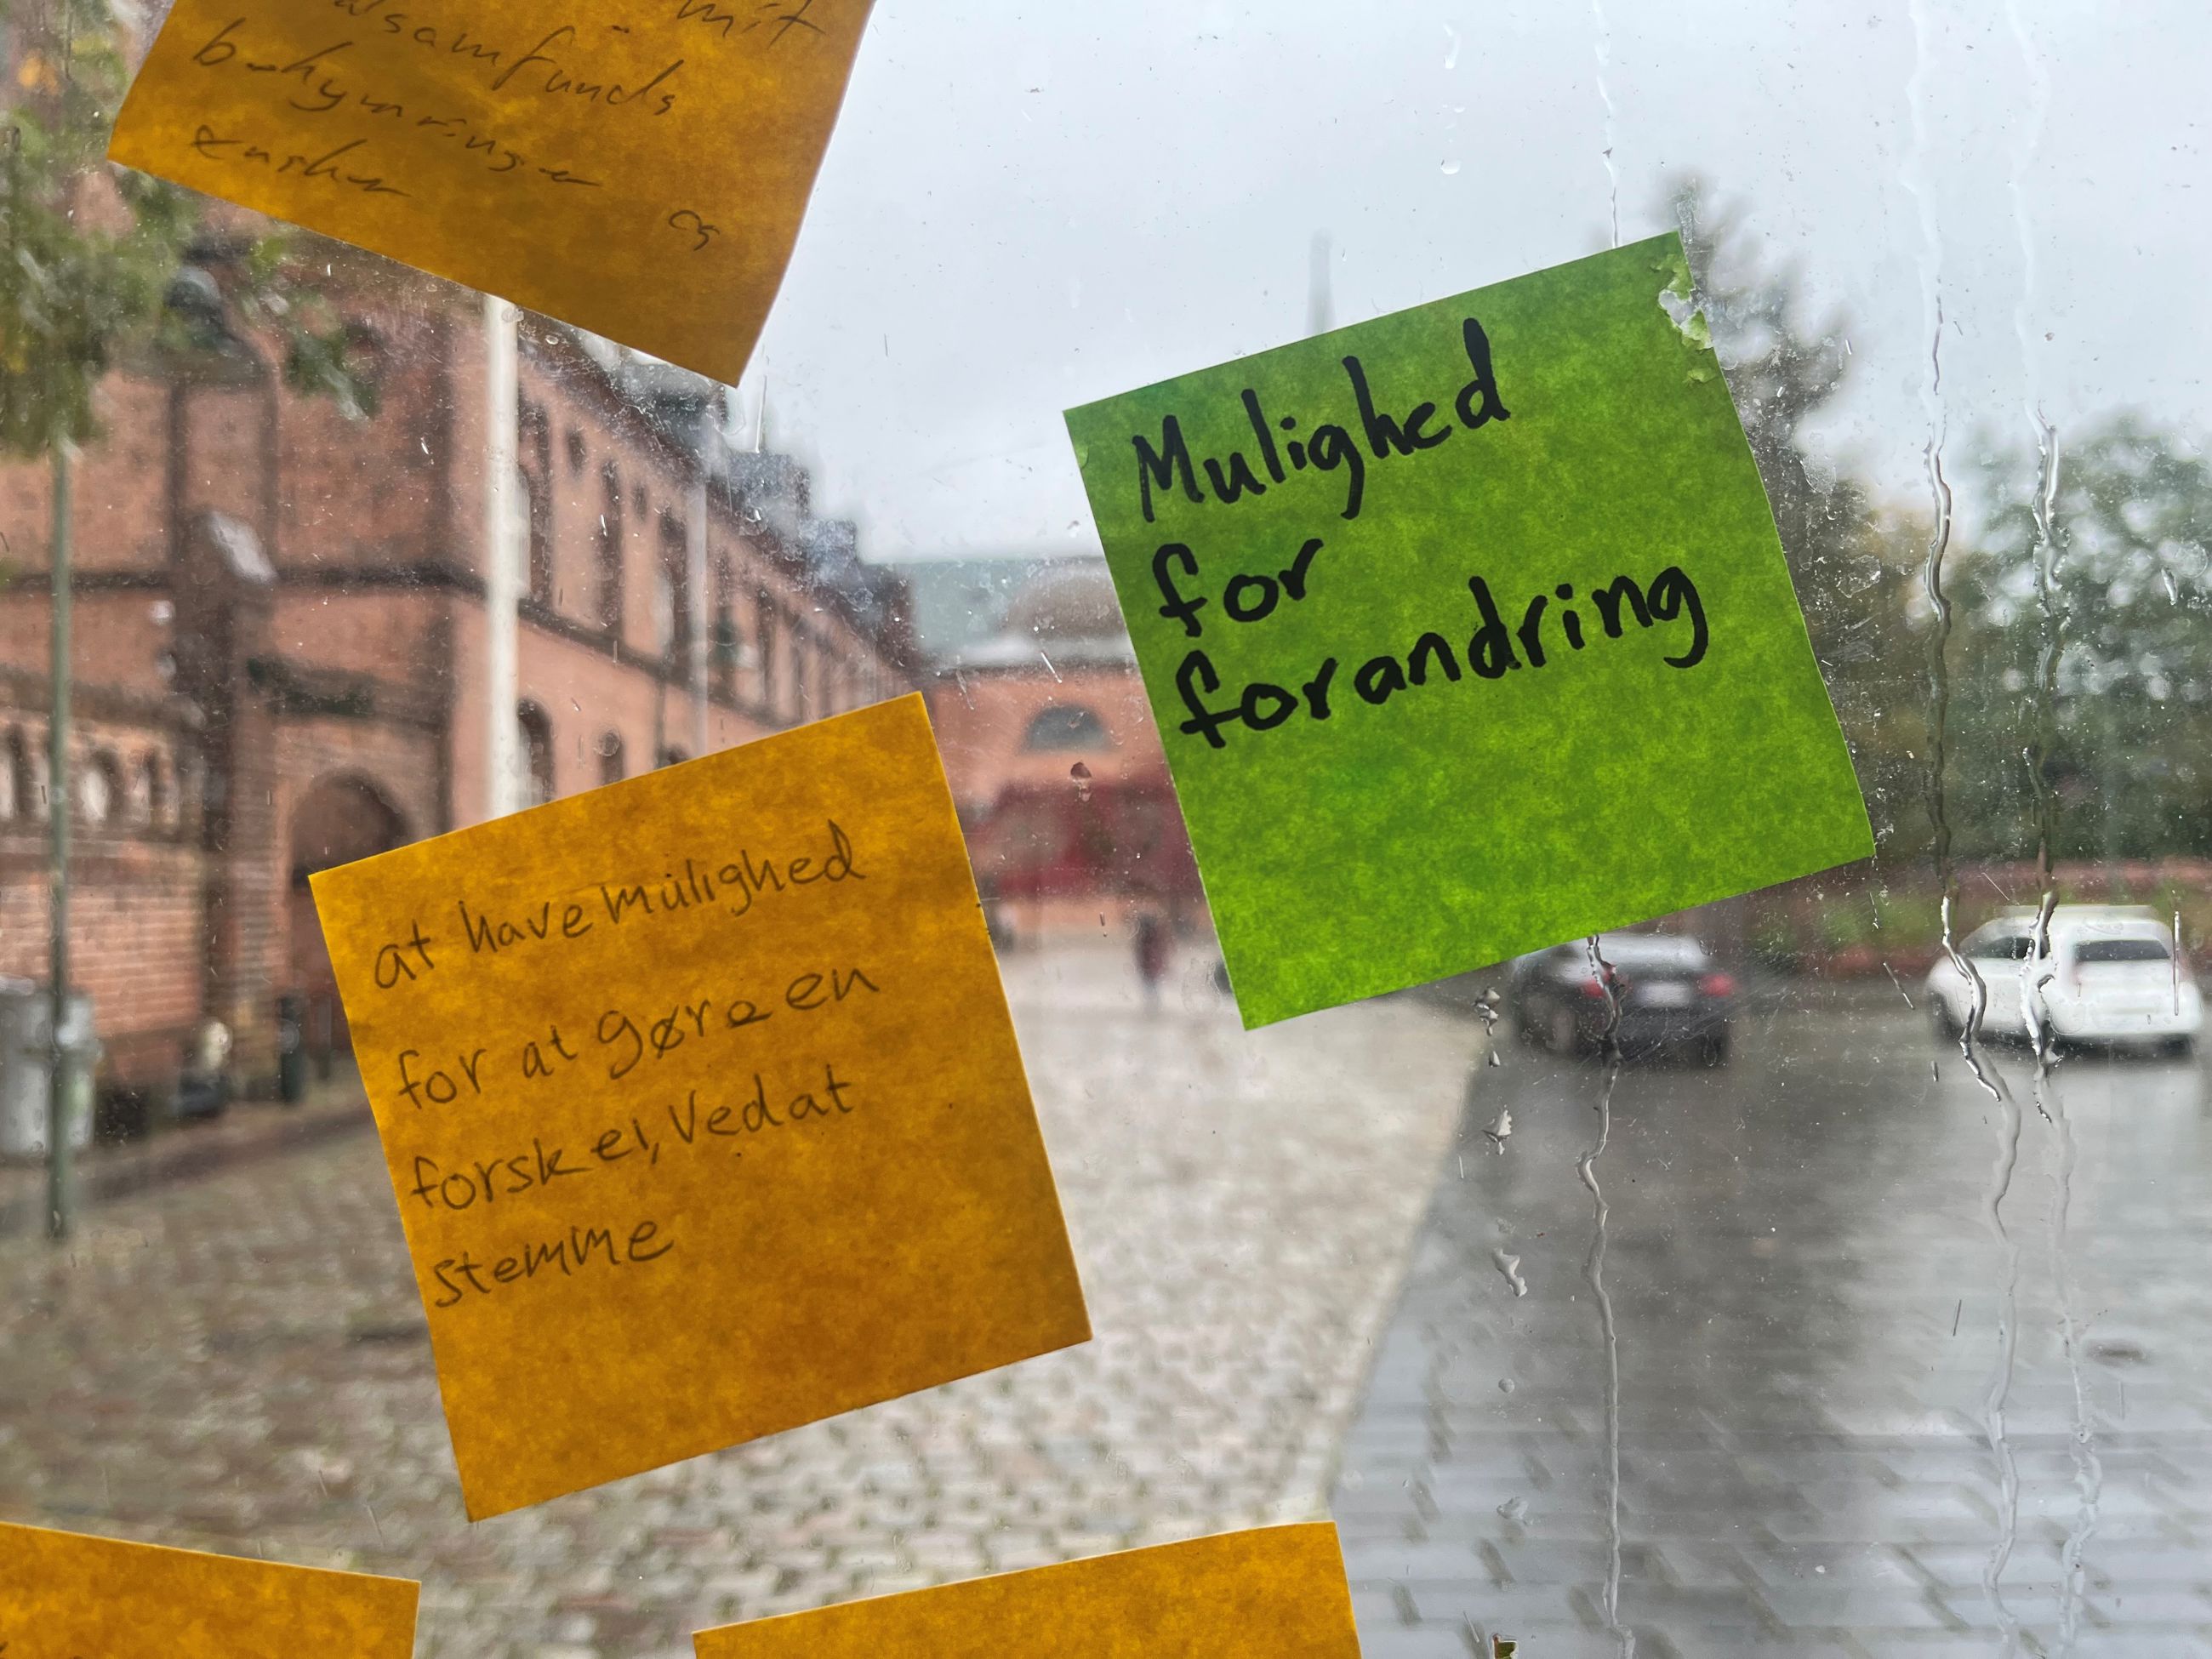 mit
alsamfunds
bekymringer og
ønsker
Mulighed
for
forandring
at have mulighed
for at gøre en
forskel, Ved at
stemme